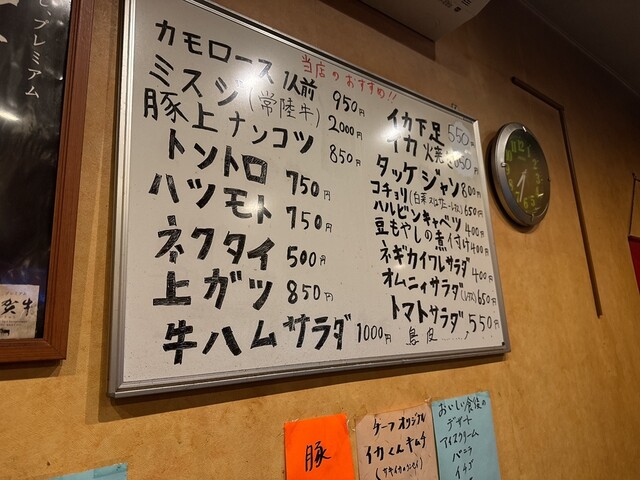 プレミアム
当店のおすすめ!!
カモロース 1人前 950円
ミスジ(常陸牛) 2000円
豚上ナンコツ 850円
トントロ 750円
ハツモト 750円
ネクタイ 500円
上ガツ 850円
牛ハムサラダ 1000円
イカ下足 550円
イカ焼き
タッケジャン 800円
コチョリ(白菜又はサニーレタス) 650円
ハルビンキャベツ 400円
豆もやしの煮付け 400円
ネギカイワレサラダ 400円
オムニィサラダ(レタス) 650円
トマトサラダ 550円
鳥皮
豚
オリジナル
イカくんキムチ
おいしい食後の
デザート
アイスクリーム
バニラ
イチゴ